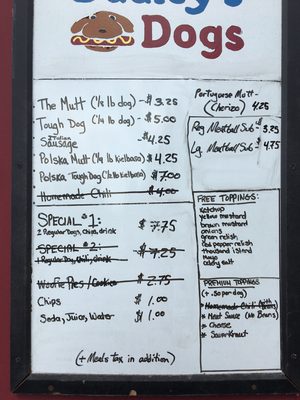 Dogs
The Mutt (1/4 lb dog) - $3.25
Tough Dog (1/2 lb dog) - $5.00
Italian
Sausage - $4.25
Polska Mutt (1/4 lb Kielbasa) $4.25
Polska Tough Dog (1/2 lb Kielbasa) $7.00
Homemade Chili $4.00
SPECIAL #1: $7.75
2 Regular Dogs, Chips, drink
SPECIAL #2: $7.25
1 Regular Dog, Chili, drink
Woofie Pies / Cookies $2.75
Chips $1.00
Soda, Juice, Water $1.00
(+ Meals tax in addition)
Portuguese Mutt -
(Chorizo) 4.25
Reg Meatball Sub - $3.25
Lg. Meatball Sub - $4.75
FREE TOPPINGS:
Ketchup
yellow mustard
brown mustard
onions
green relish
red pepper relish
thousand island
Mayo
celery salt
PREMIUM TOPPINGS
(+ .50 per dog)
* Homemade Chili
* Meat Sauce (No Beans)
* Cheese
* SauerKraut